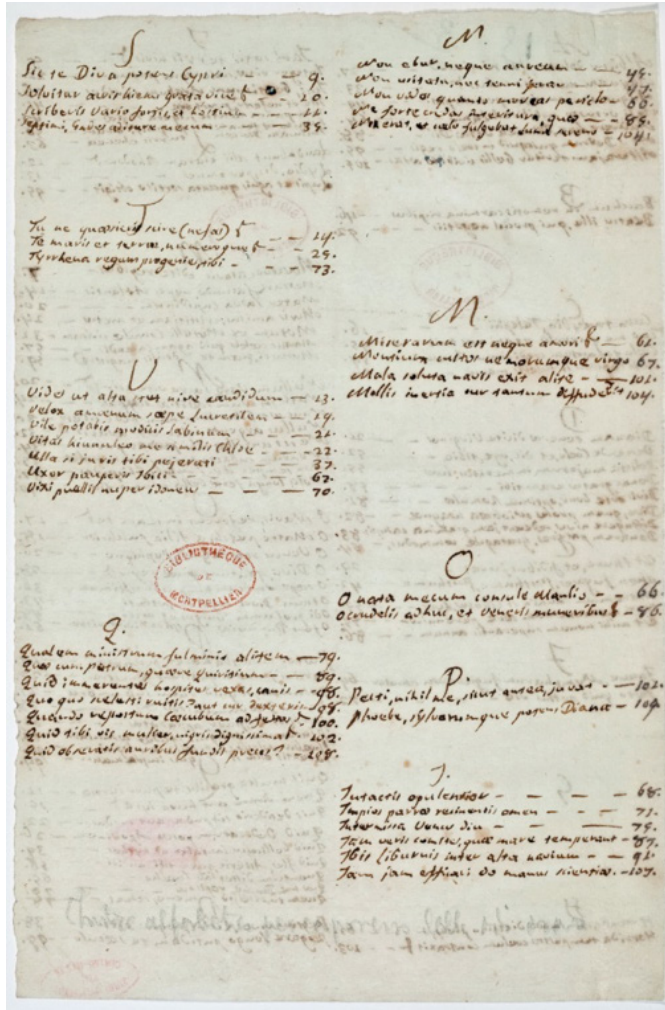 S
Sic te Diva potens Cypri — — 9.
Solvitur acris hiems grata vice — — 10.
Scriberis Vario fortis, et hostium — 11.
Septimi, Gades aditure mecum — 35.
T
Tu ne quæsieris scire (nefas) — — 14.
Te maris et terræ, numeroque — — 25.
Tyrrhena regum progenies, tibi — — 73.
V
Vides ut alta stet nive candidum — 13.
Velox amœnum sæpe Lucretilem — 19.
Vile potabis modicis Sabinum — 21.
Vitas hinnuleo me similis Chloe — 22.
Ulla si juris tibi pejerati — 37.
Uxor pauperis Ibici — — 67.
Vixi puellis nuper idoneus — — 70.
BIBLIOTHÈQUE DE MONTPELLIER
Q.
Qualem ministrum fulminis alitem — 79.
Quo cum Petrum, quære — 89.
Quid immerentes hospites vexas, canis — 98.
Quo quo scelesti ruitis? aut cur dexteris 98.
Quando repostum Cæcubum ad — 100.
Quid tibi vis mulier, nigris dignissima — 102.
Quid obseratis auribus fundis preces? — 108.
N.
Non ebur, neque aureum — — 45.
Non usitata, nec tenui ferar — — 47.
Non vides quanto moveas periclo — 66.
Ne forte credas interitura, quæ — — 85.
Nox erat, et cælo fulgebat Luna sereno — 104.
M.
Miserarum est neque amori — 61.
Montium custos nemorumque virgo 67.
Mala soluta navis exit alite — — 102.
Mollis inertia cur tantam diffuderit 104.
O
O nata mecum consule Manlio — — 66.
O crudelis adhuc, et Veneris muneribus — 86.
P.
Pecti, nihil me, sicut antea, juvat — — 102.
Phœbe, sylvarumque potens Diana — 109.
I.
Intactis opulentior — — — — 68.
Impios parræ recinentis omen — — — 71.
Intermissa Venus diu — — — — 75.
Jam veris comites, quæ mare temperant — 87.
Ibis Liburnis inter alta navium — — 91.
Jam jam efficaci do manus scientiæ. — 107.